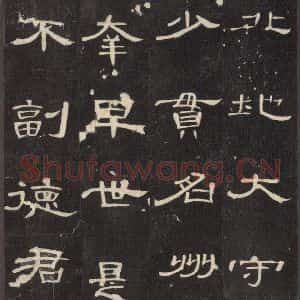 北地大守
少貫名州
幸早世是
不副德君
Shufawang.CN